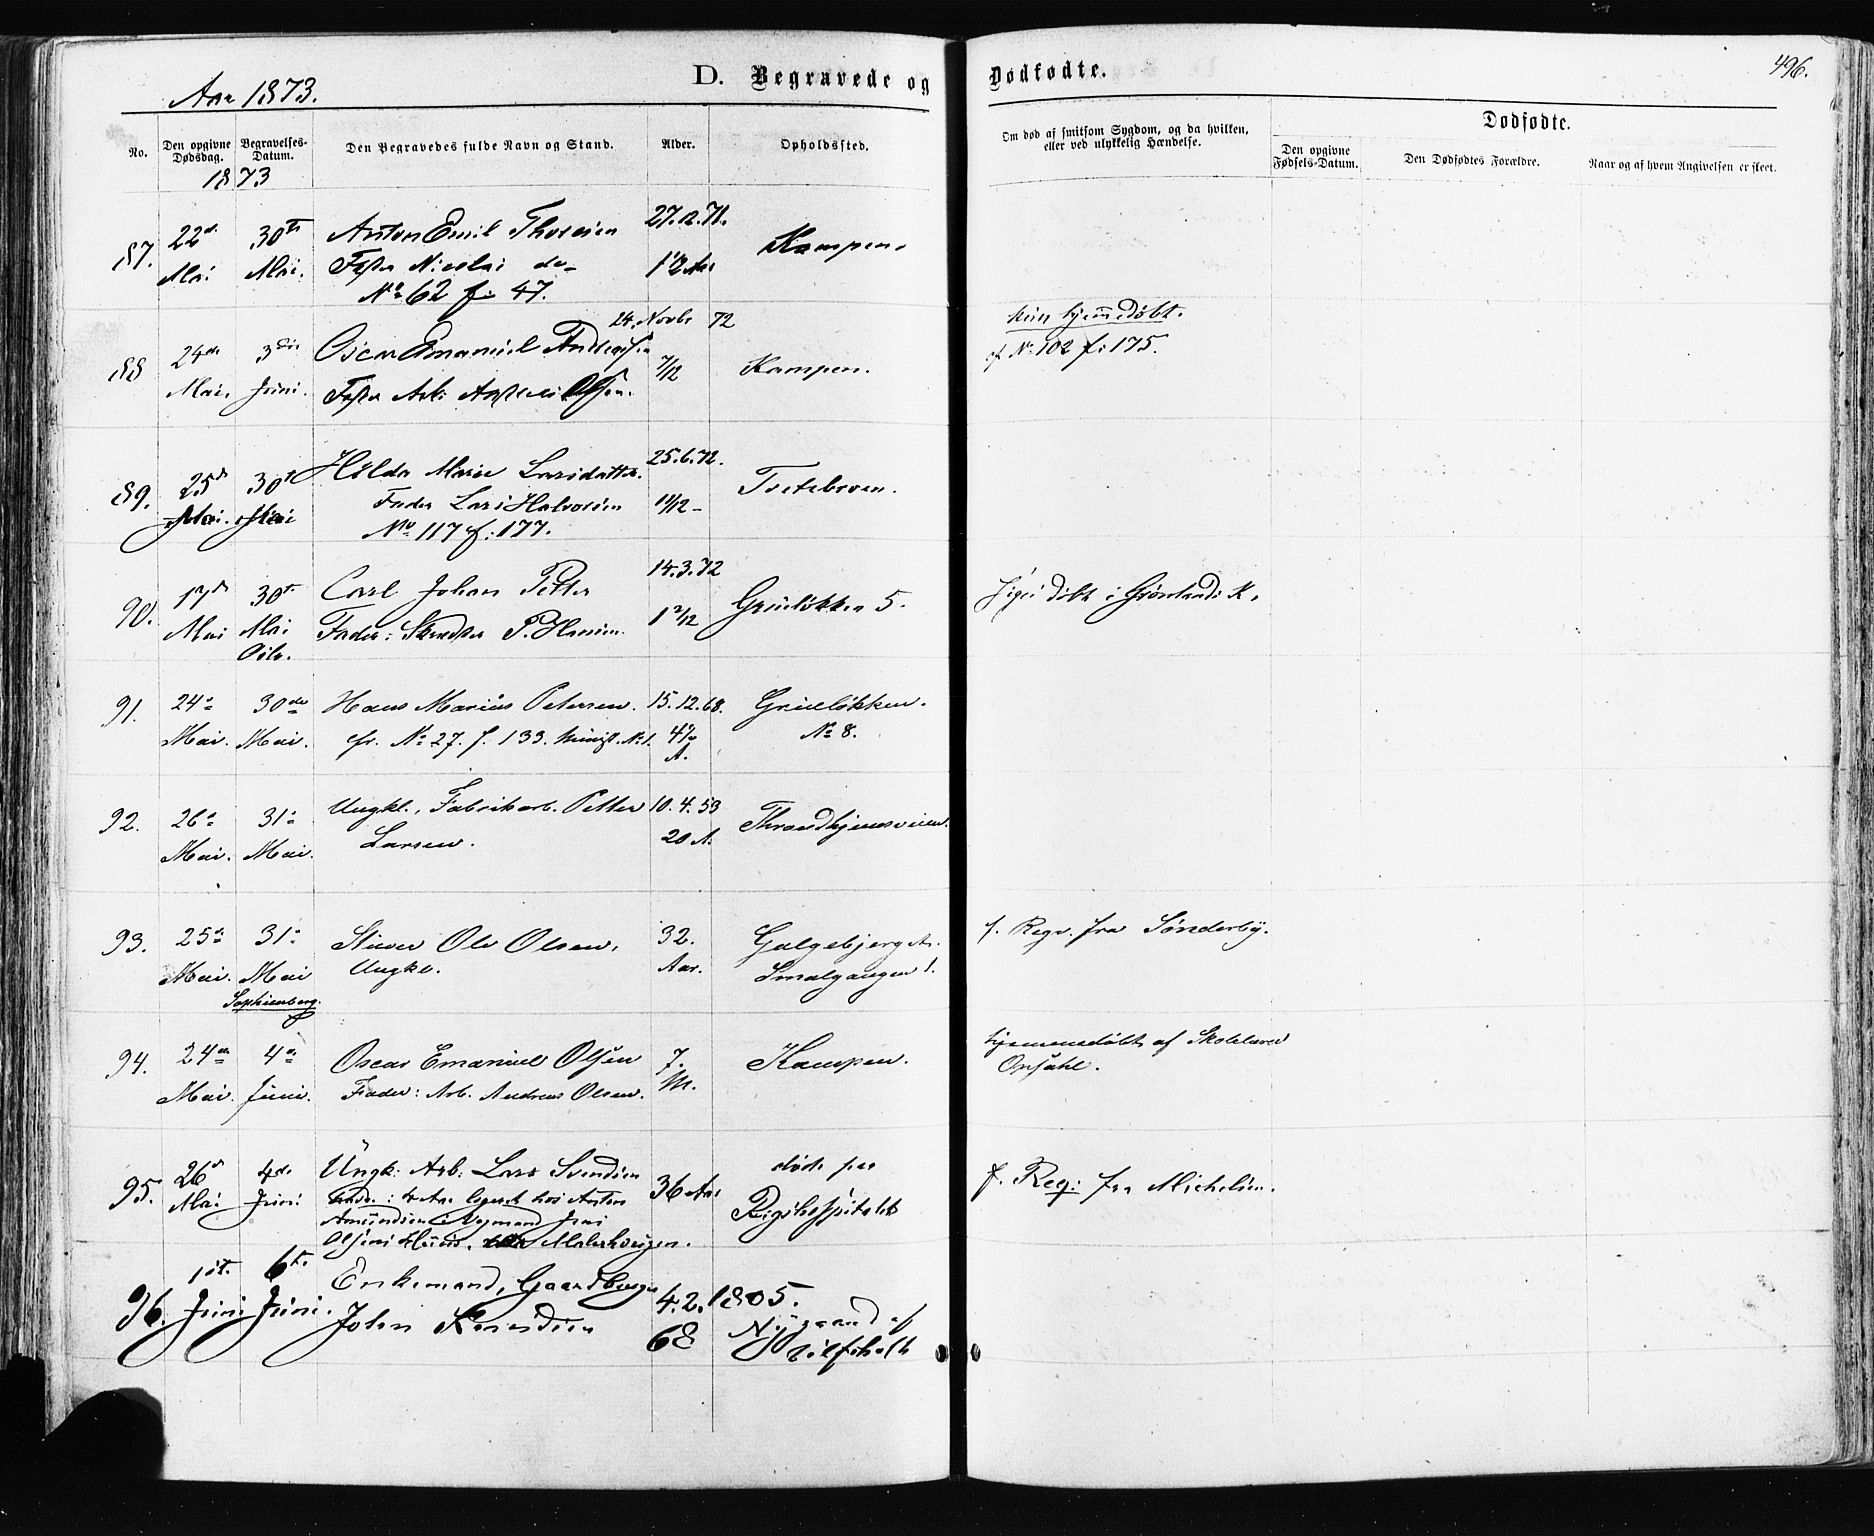 496.
Aar 1873.
D. Begravede og Dødfødte.
No.
Den opgivne Dødsdag.
Begravelses-Datum.
Den Begravedes fulde Navn og Stand.
Alder.
Opholdssted.
Om død af smitsom Sygdom, og da hvilken, eller ved ulykkelig Hændelse.
Dødfødte.
Den opgivne Fødsels-Datum.
Den Dødfødtes Forældre.
Naar og af hvem Angivelsen er skeet.
1873
87.
22d Mai
30te Mai.
Anton Emil Thorsen
Fader Nicolai do
No 62 f: 47.
27.12.71.
Kampen.
88
24de Mai.
3die Juni.
24. Novbr 72
Oscar Emanuel Andreasen
Fader Arb. Andreas Olsen.
7/12
Kampen.
kun hjemmedøbt.
cf No 102 f: 175.
89.
25d Mai.
30t Mai
Hilda Marie Larsdatter.
Fader Lars Halvorsen
No 117 f: 177.
25.6.72.
11/12
Tvetebroen.
90.
17d Mai
30te Mai
Oslo.
Carl Johan Petter
Fader: Skrædder P. Hansen.
14.3.72
1 2/12
Grünløkken 5.
døbt i Grønlands K.
91.
24d Mai.
30de Mai.
Hans Marius Petersen.
cfr. No 27. f. 133. Minist. No 1.
15.12.68.
A.
Grünløkken.
No 8.
92.
26d Mai.
31d Mai.
Ungkl., Fabrikarb. Petter
Larsen.
10.4.53
20 A.
Throndhjemsveien.
93.
25d Mai.
31d Mai
Sophienberg.
Ole Olsen,
Ungkl.
32.
Aar.
Galgebjerget.
Smalgangen 1.
f. Regn. fra Sønderby.
94.
24de Mai.
4de Juni.
Oscar Emanuel Olsen
Fader: Arb. Andreas Olsen.
7.
M.
Kampen.
hjemmedøbt af Skolelærer
Opsahl.
95.
26d Mai
4de Juni
Ungk: Arb: Lars Svendsen
Amundsen
36 Aar
døde paa
Rigshospitalet
f. Reg: fra Michelsen.
96.
1ste Juni
6te Juni.
Enkemand, Gaardbruger
John Knudsen
4.2.1805.
68
Nygaard